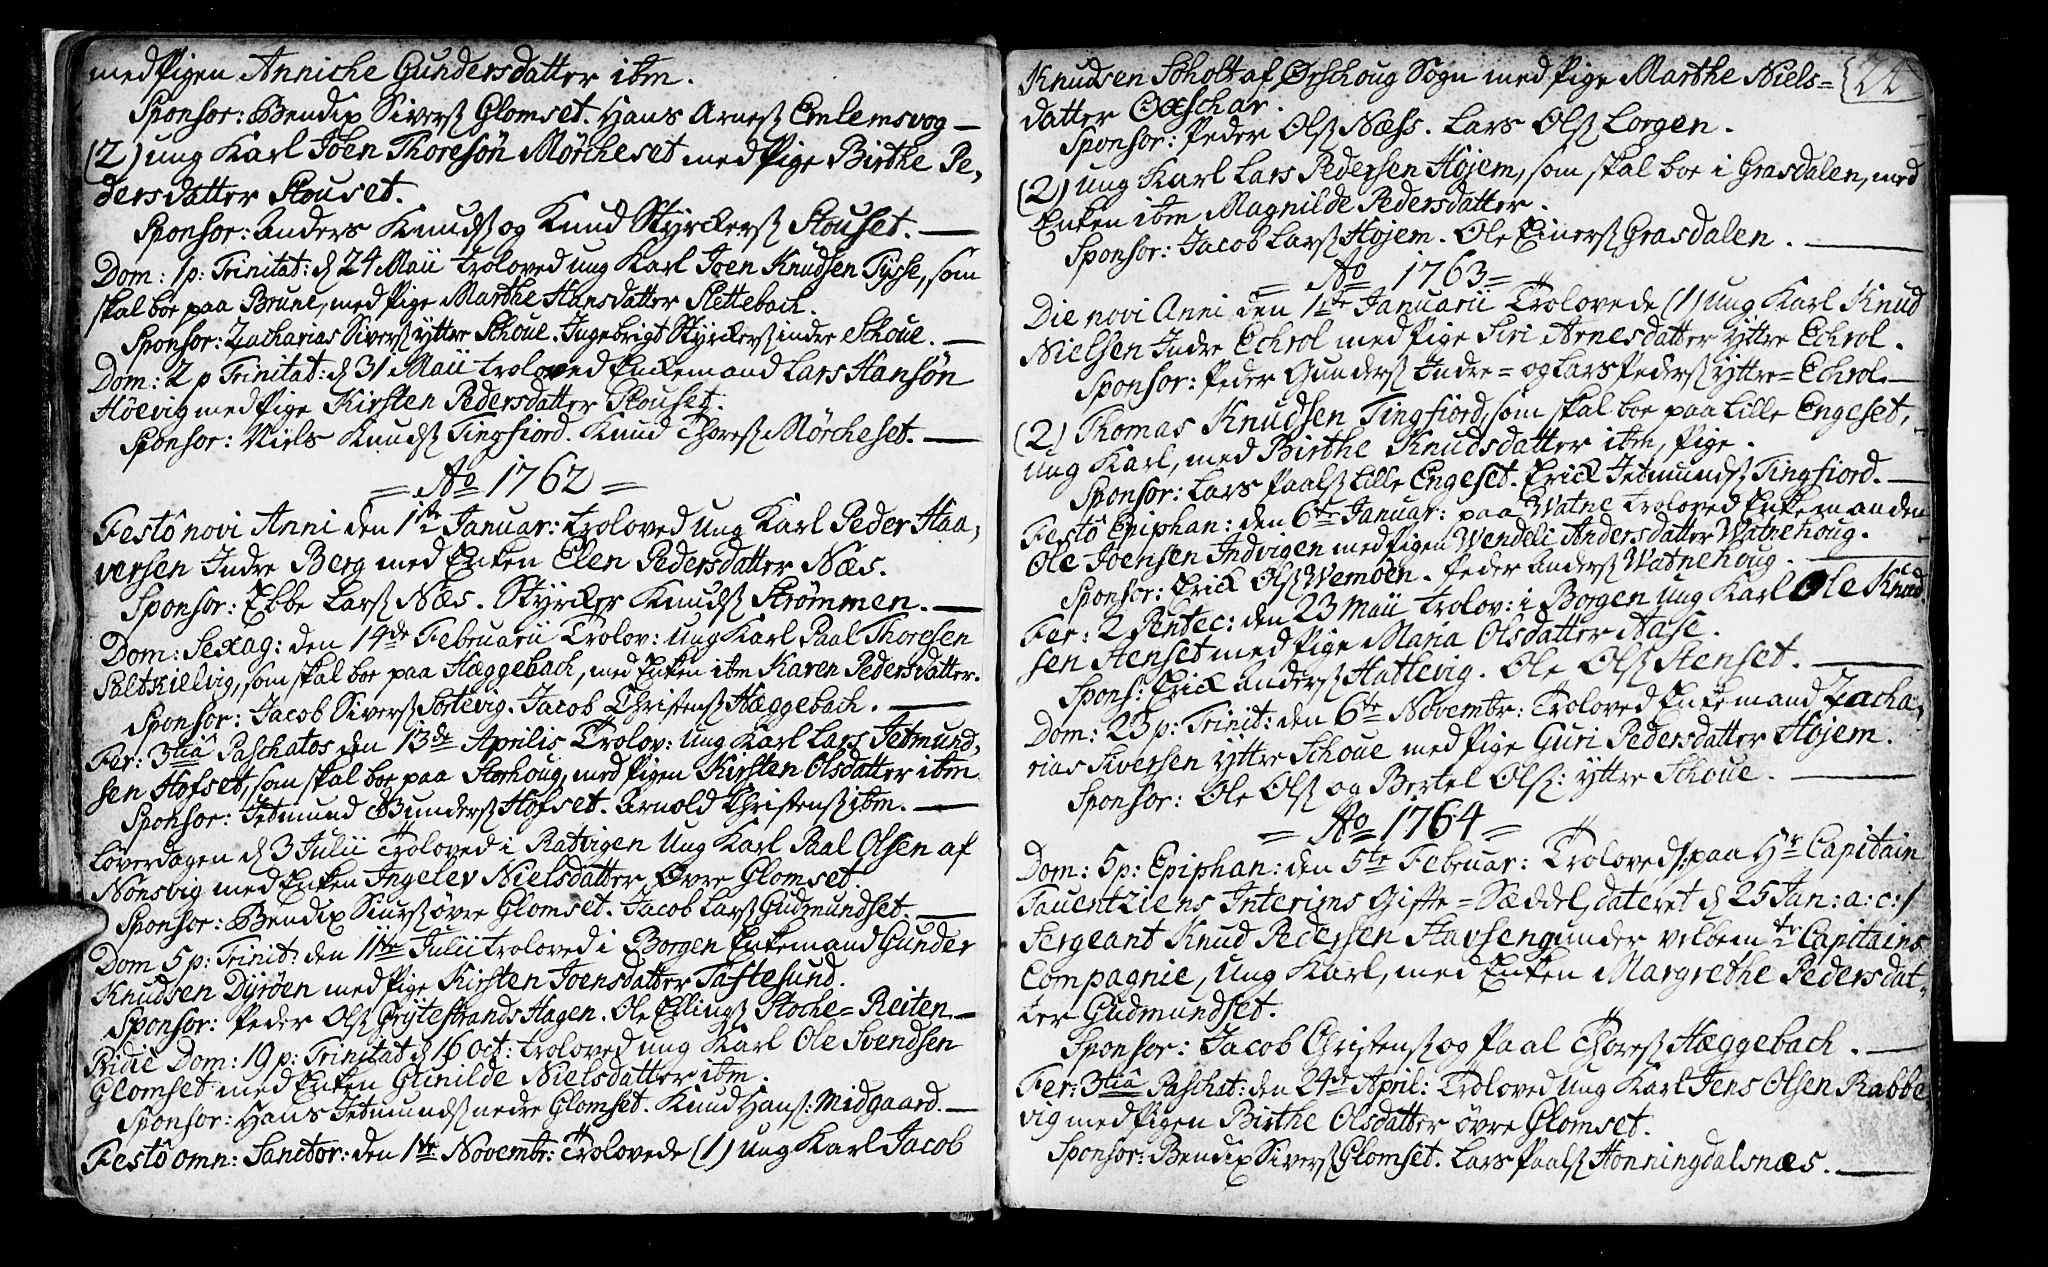 med Pigen Anniche Gundersdatter ibm.
Sponsor: Bendix Siverſz Glomset. Hans Arneſz Emlemsvog —
(2) ung Karl Joen Thoresön Mörcheset med Pige Birthe Pe,
dersdatter Skouset.
Sponsor: Anders Knudſz og Knud Styrckerſz Skouset. —
Dom: 1 p: Trinitat: d 24 Maii troloved ung Karl Joen Knudsen Tysse, som
skal boe paa Brune, med Pige Marthe Hansdatter Slettebach.
Sponsor: Zacharias Siverſz yttre Schoue. Ingebrigt Styrckerſz indre Schoue. —
Dom: 2 p Trinitat: d 31 Maii troloved Enckemand Lars Hansön
Höevig med Pige Kirsten Pedersdatter Skouset.
Sponsor: Niels Knudſz Tingfiord. Knud Thoreſz Mörcheset. —
= Ao 1762 =
Festô novi Anni den 1ste Januar: troloved ung Karl Peder Haa,
versen Indre Berg med Enken Elen Pedersdatter Næs.
Sponsor: Ebbe Larſz Næs. Styrcker Knudſz Strömmen. —
Dom: Sexag: den 14de Februarii Trolov: ung Karl Paal Thoresen
Saltkielvig, som skal boe paa Hæggebach, med Enken ibm Karen Pedersdatter.
Sponsor: Jacob Siverſz Sortevig. Jacob Christenſz Hæggebach. —
Fer: 3tiâ Paschatos den 13de Aprilis Trolov: ung Karl Lars Jetmund,
sen Hofset, som skal boe paa Storhoug, med Pigen Kirsten Olsdatter ibm
Sponsor: Jetmund Gunderſz Hofset. Arnold Christenſz ibm. —
Löverdagen d 3 Julii Troloved i Ratvigen Ung Karl Paal Olsen af
Nonsvig med Enken Ingelev Nielsdatter Øvre Glomset.
Sponsor: Bendix Siurſz övre Glomset. Jacob Larſz Gudmundset. —
Dom 5 p: Trinit: den 11te Julii troloved i Borgen Enkemand Gunder
Knudsen Dyröen med Pige Kirsten Joensdatter Taftesund.
Sponsor: Peder Olſz Grytestrands Hagen. Ole Ellingſz Stoche= Reiten —
Pridie Dom: 19 p: Trinitat d 16 Oct: troloved ung Karl Ole Svendsen
Glomset med Enken Gunilde Nielsdatter ibm.
Sponsor: Hans Jetmundſz nedre Glomset. Knud Hanſz: Midgaard. —
Festô omn: Sanctor: den 1ste Novembr: Trolovede (1) ung Karl Jacob
24
Knudsen Soholt af Ørschoug Sogn med Pige Marthe Niels=
datter Oxschar.
Sponsor: Peder Olſz Næss. Lars Olſz Lorgen.
(2) ung Karl Lars Pedersen Höjem, som skal boe i Grasdalen, med
Enken ibm Magnilde Pedersdatter.
Sponsor: Jacob Larſz Höjem. Ole Einerſz Grasdalen. —
= Ao 1763 =
Die novi Anni den 1ste Januarii Trolovede (1) ung Karl Knud
Nielsen Indre Echrol med Pige Siri Arnesdatter yttre Echrol.
Sponsor: Peder Gunderſz Indre= og Lars Pederſz yttre= Echrol. —
(2) Thomas Knudsen Tingfiord, som skal boe paa Lille Engeset,
ung Karl, med Birthe Knudsdatter ibm, Pige.
Sponsor: Lars Paalſz Lille Engeset. Erick Jetmundſz Tingfiord. —
Festô Epiphan: den 6te Januar: paa Watne troloved Enkemanden
Ole Joensen Indvigen med Pigen Wendele Andersdatter Watnehoug.
Sponsor: Erick Olſz Wemöen. Peder Anderſz Watnehoug. —
Fer: 2 Pentec: den 23 Maii trolov: i Borgen ung Karl Ole Knud
sen Stenset med Pige Maria Olsdatter Aase.
Spons: Erick Anderſz Hatlevig. Ole Olſz Stenset. —
Dom: 23 p: Trinit: den 6te Novembr: Troloved Enkemand Zacha,
rias Siversen yttre Schoue med Pige Guri Pedersdatter Höjem.
Sponsor: Ole Olſz og Bertel Olſz: yttre Schoue. —
= Ao 1764 =
Dom: 5 p: Epiphan: den 5te Februar: Troloved /: paa Hr Capitain
Tauentziens Interims Gifte= Sæddel, dateret d 25 Jan: a: c: /
Sergeant Knud Pedersen Stavseng under velbem te Capitains
Compagnie, Ung Karl, med Enken Margrethe Pedersdat,
ter Gudmundset.
Sponsor: Jacob Christenſz og Paal Thoreſz Hæggebach. —
Fer: 3tiâ Paschat: den 24de April: Troloved ung Karl Jens Olsen Rabbe
vig med Pigen Birthe Olsdatter övre Glomset.
Sponsor: Bendix Siverſz Glomset. Lars Paalſz Honningdalsnæs. —